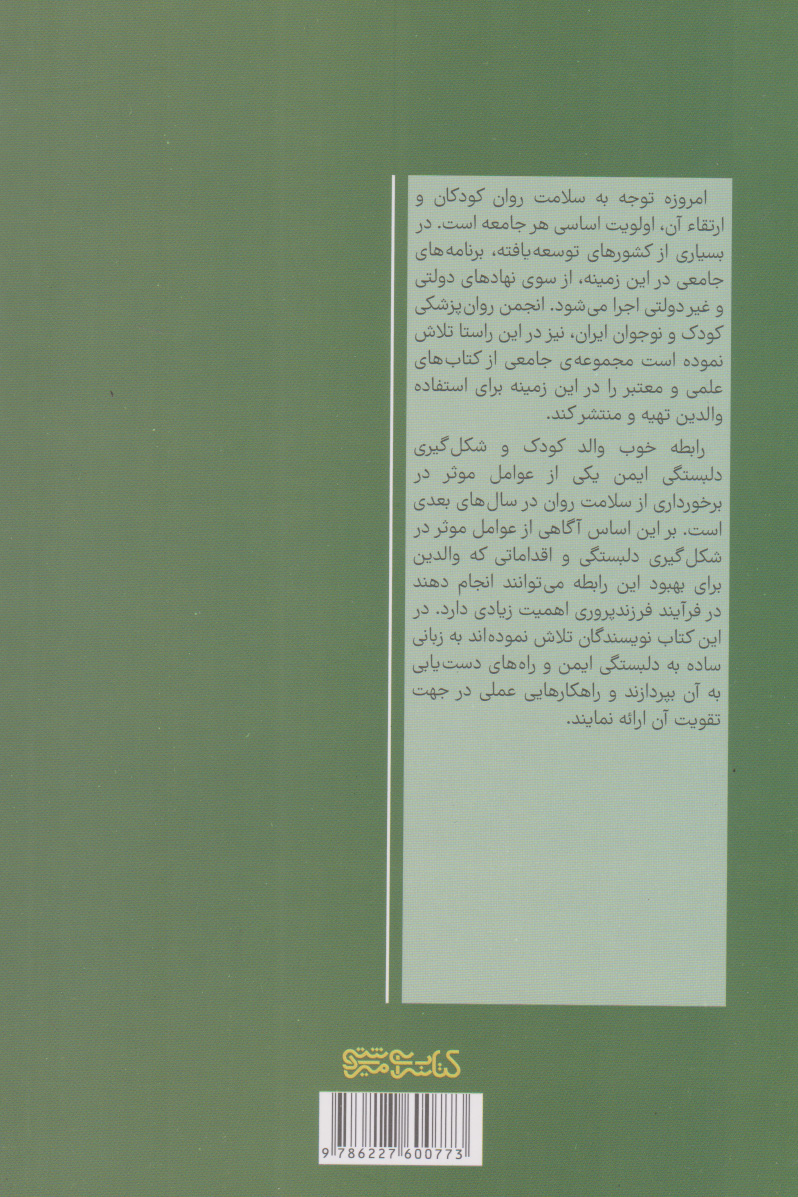 امروزه توجه به سلامت روان کودکان و
ارتقاء آن، اولویت اساسی هر جامعه است. در
بسیاری از کشورهای توسعه‌یافته، برنامه‌های
جامعی در این زمینه، از سوی نهادهای دولتی
و غیر دولتی اجرا می‌شود. انجمن روان‌پزشکی
کودک و نوجوان ایران، نیز در این راستا تلاش
نموده است مجموعه‌ی جامعی از کتاب‌های
علمی و معتبر را در این زمینه برای استفاده
والدین تهیه و منتشر کند.
رابطه خوب والد کودک و شکل‌گیری
دلبستگی ایمن یکی از عوامل موثر در
برخورداری از سلامت روان در سال‌های بعدی
است. بر این اساس آگاهی از عوامل موثر در
شکل‌گیری دلبستگی و اقداماتی که والدین
برای بهبود این رابطه می‌توانند انجام دهند
در فرآیند فرزندپروری اهمیت زیادی دارد. در
این کتاب نویسندگان تلاش نموده‌اند به زبانی
ساده به دلبستگی ایمن و راه‌های دست‌یابی
به آن بپردازند و راهکارهایی عملی در جهت
تقویت آن ارائه نمایند.
کتابسرای میردشتی
9 786227 600773